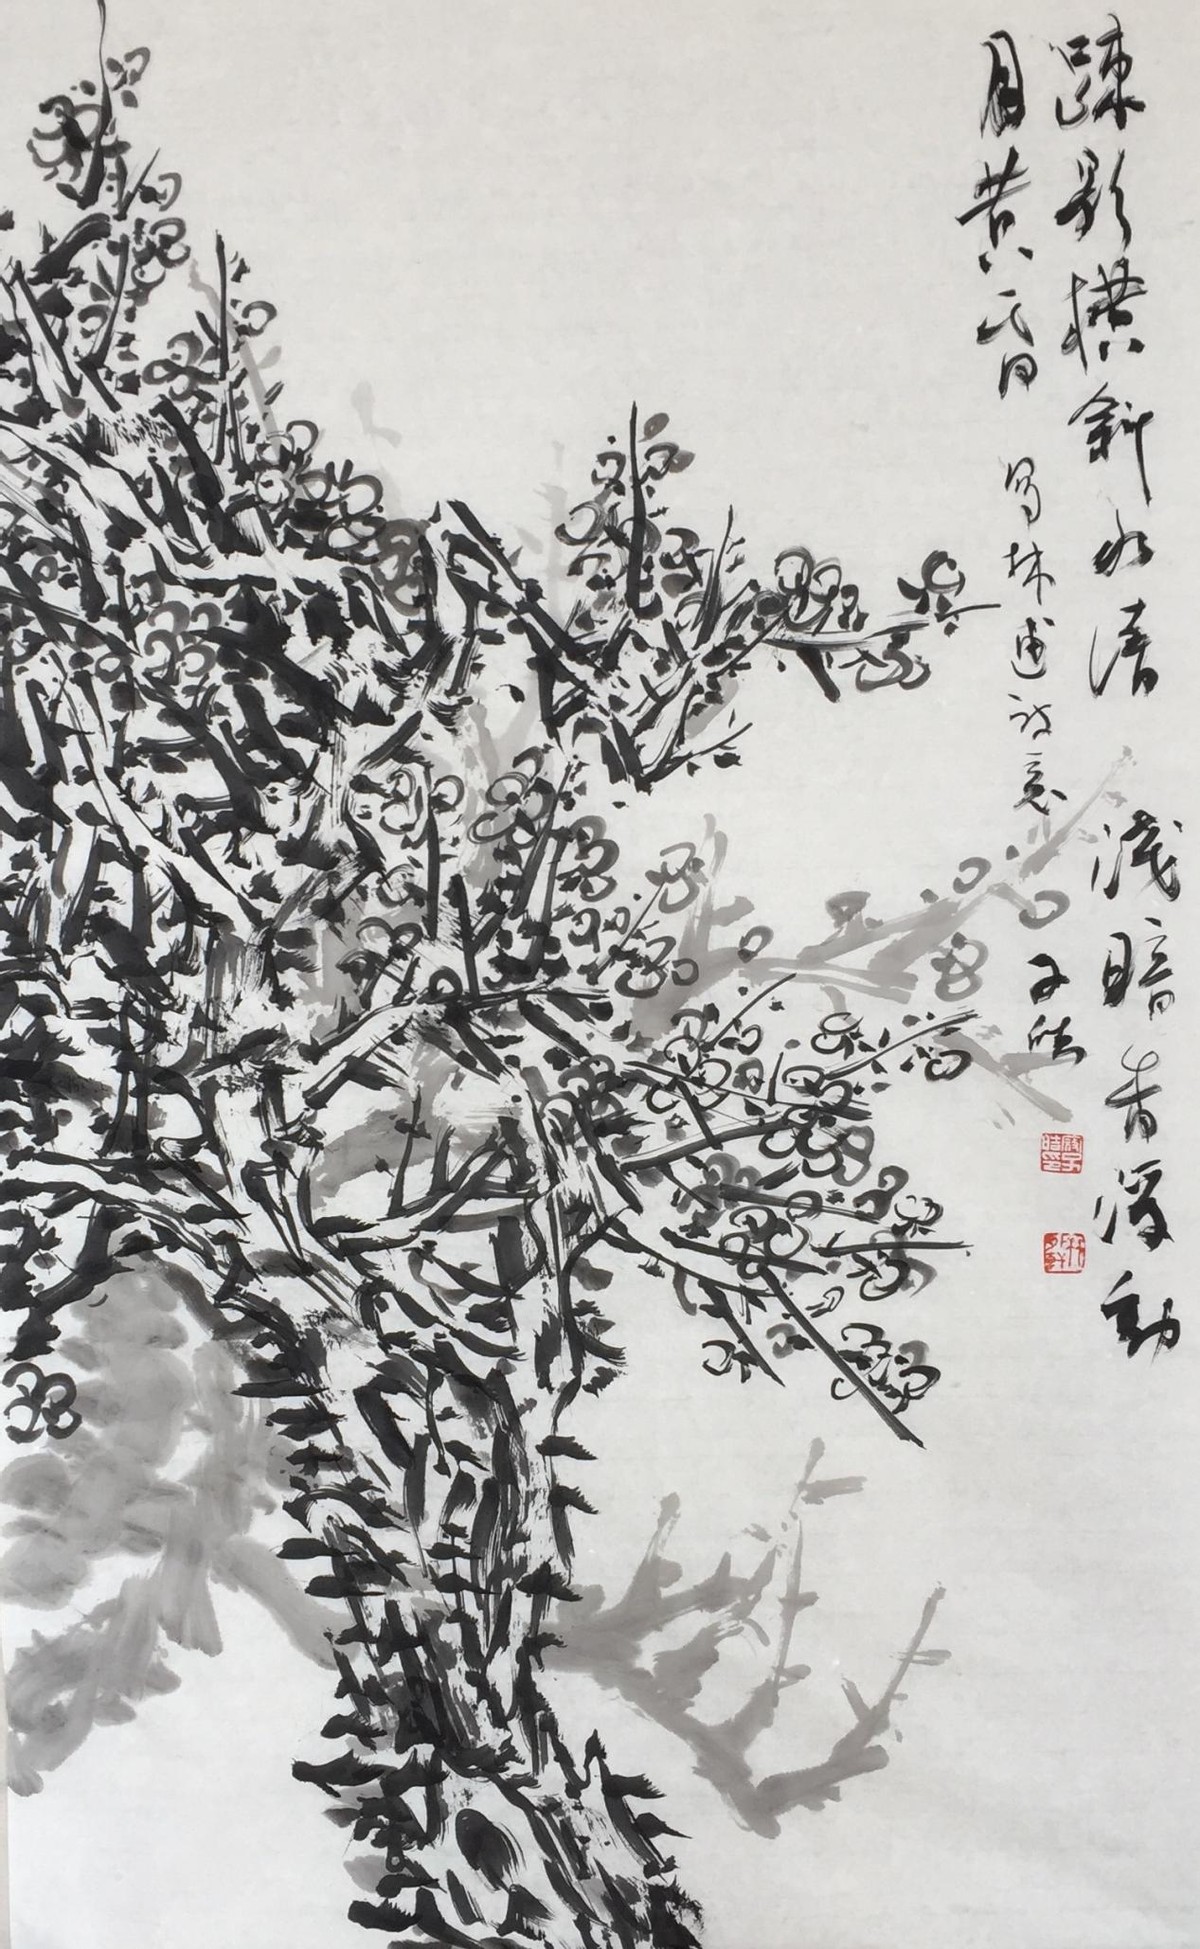 疎影横斜水清浅暗香浮動
月黄昏 写林逋詩意 子然